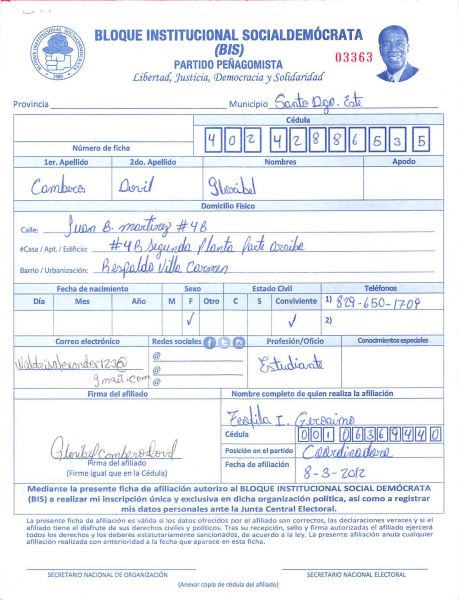 BLOQUE INSTITUCIONAL SOCIALDEMÓCRATA
(BIS)
03363
PARTIDO PEÑAGOMISTA
Libertad, Justicia, Democracia y Solidaridad
Provincia Municipio Santo Dgo. Este
Cédula
Número de ficha 40242886535
1er. Apellido 2do. Apellido Nombres Apodo
Camberos Dovil Gloribel
Domicilio Físico
Calle: Juan B. martinez #4B
#Casa / Apt. / Edificio: #4B Segunda Planta Parte arriba
Barrio / Urbanización: Respaldo Villa Carmen
Fecha de nacimiento Sexo Estado Civil Teléfonos
Día Mes Año M F Otro C S Conviviente 1) 829-650-1709
✓ ✓ 2)
Correo electrónico Redes sociales Profesión/Oficio Conocimientos especiales
@
@ Estudiante
gmail.com @
Firma del afiliado Nombre completo de quien realiza la afiliación
Teofila I. Geronimo
Cédula 00106369440
Posición en el partido Coordinadora
Firma del afiliado
(Firme igual que en la Cédula)
Fecha de afiliación 8-3-2012
Mediante la presente ficha de afiliación autorizo al BLOQUE INSTITUCIONAL SOCIAL DEMÓCRATA
(BIS) a realizar mi inscripción única y exclusiva en dicha organización política, así como a registrar
mis datos personales ante la Junta Central Electoral.
La presente ficha de afiliación es válida si los datos ofrecidos por el afiliado son correctos, las declaraciones veraces y si el
afiliado tiene el disfrute de sus derechos civiles y políticos. Tras su recepción, sello y firma autorizadas el afiliado ejercerá
todos los derechos y los deberes estatutariamente sancionados, de acuerdo a la ley. La presente afiliación anula cualquier
afiliación realizada con anterioridad a la fecha que aparece en esta ficha.
SECRETARIO NACIONAL DE ORGANIZACIÓN SECRETARIO NACIONAL ELECTORAL
(Anexar copia de cédula del afiliado)